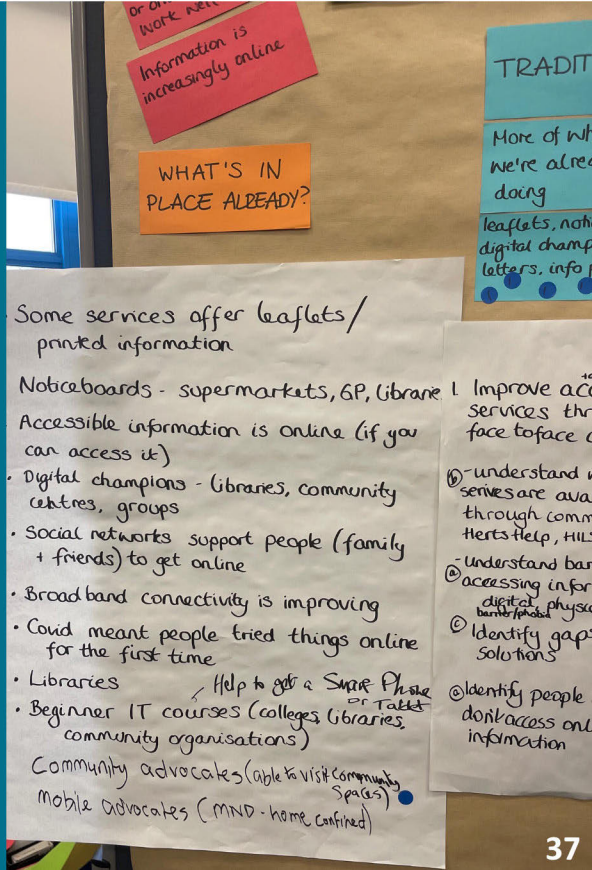 or on
work
Information is
increasingly online
WHAT'S IN
PLACE ALREADY?
TRADIT
More of wh
we're alrea
doing
leaflets, noti
digital champ
letters, info p
Some services offer leaflets/
printed information
Noticeboards - supermarkets, GP, librarie
Accessible information is online (if you
can access it)
• Digital champions - libraries, community
centres, groups
• Social networks support people (family
+ friends) to get online
• Broadband connectivity is improving
• Covid meant people tried things online
for the first time
• Libraries
Help to get a Smart Phone
or Tablet
• Beginner IT courses (colleges, libraries,
community organisations)
Community advocates (able to visit community
Spaces)
Mobile advocates (MND - home confined)
1. Improve acc
services thr
face toface
(b) - understand
serives are ava
through comm
Herts Help, HILS
- understand bar
(a) accessing infor
digital, physic
barrier/phobia
(c) Identify gaps
Solutions
(a) Identify people
don't access onl
information
37